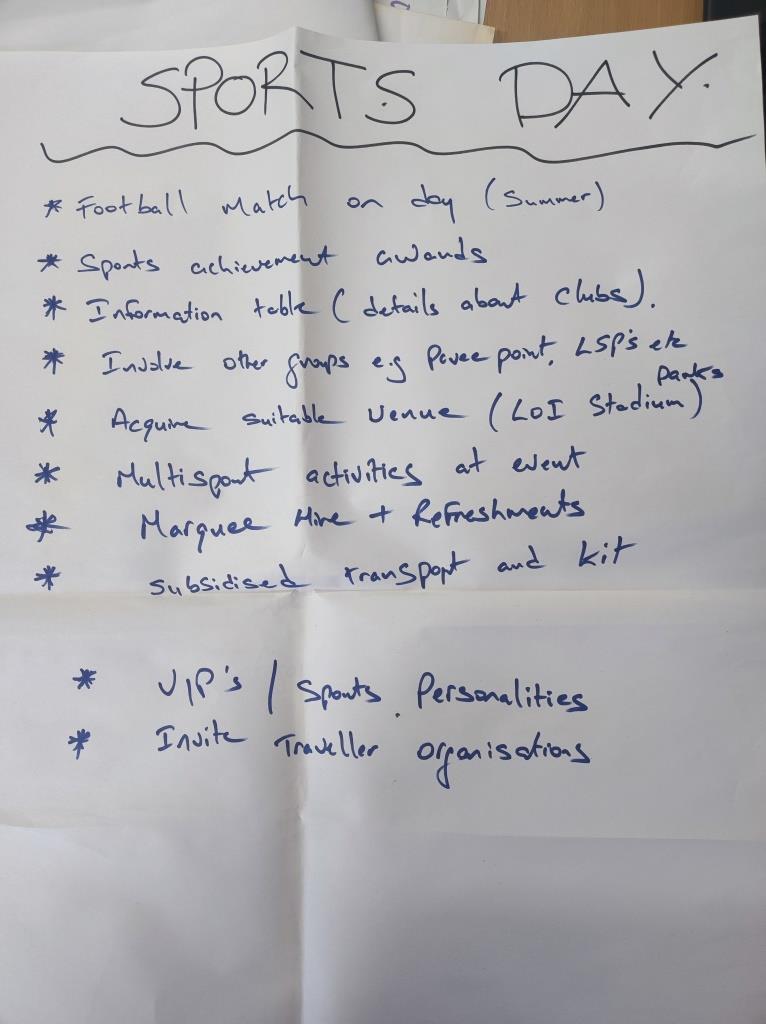 SPORTS DAY.
* Football Match on day (Summer)
* Sports achievement awards
* Information table (details about clubs).
* Involve other groups e.g Pavee point, LSP's etc
parks
* Acquire suitable venue (LOI Stadium)
* Multisport activities at event
* Marquee Hire + Refreshments
* subsidised transport and kit
* VIP's / Sports Personalities
* Invite Traveller organisations